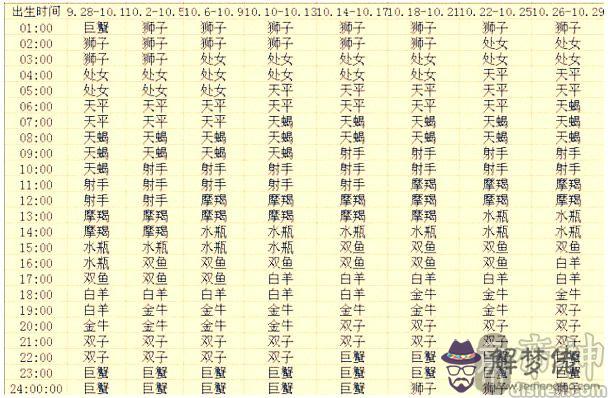 出生时间 9.28-10.1 10.2-10.5 10.6-10.9 10.10-10.13 10.14-10.17 10.18-10.21 10.22-10.25 10.26-10.29
01:00 巨蟹 狮子 狮子 狮子 狮子 狮子 狮子 狮子
02:00 狮子 狮子 狮子 狮子 狮子 狮子 处女 处女
03:00 狮子 狮子 处女 处女 处女 处女 处女 处女
04:00 处女 处女 处女 处女 处女 处女 天平 天平
05:00 处女 处女 处女 天平 天平 天平 天平 天平
06:00 天平 天平 天平 天平 天平 天平 天平 天蝎
07:00 天平 天平 天平 天蝎 天蝎 天蝎 天蝎 天蝎
08:00 天蝎 天蝎 天蝎 天蝎 天蝎 天蝎 天蝎 天蝎
09:00 天蝎 天蝎 天蝎 天蝎 射手 射手 射手 射手
10:00 天蝎 射手 射手 射手 射手 射手 射手 射手
11:00 射手 射手 射手 射手 射手 摩羯 摩羯 摩羯
12:00 射手 射手 摩羯 摩羯 摩羯 摩羯 摩羯 摩羯
13:00 摩羯 摩羯 摩羯 摩羯 摩羯 摩羯 水瓶 水瓶
14:00 摩羯 摩羯 水瓶 水瓶 水瓶 水瓶 水瓶 水瓶
15:00 水瓶 水瓶 水瓶 水瓶 双鱼 双鱼 双鱼 双鱼
16:00 水瓶 双鱼 双鱼 双鱼 双鱼 双鱼 双鱼 白羊
17:00 双鱼 双鱼 双鱼 白羊 白羊 白羊 白羊 白羊
18:00 白羊 白羊 白羊 白羊 白羊 金牛 金牛 金牛
19:00 白羊 金牛 金牛 金牛 金牛 金牛 金牛 双子
20:00 金牛 金牛 金牛 金牛 双子 双子 双子 双子
21:00 双子 双子 双子 双子 双子 双子
22:00 双子 双子 双子 双子 巨蟹 巨蟹
23:00 巨蟹 巨蟹 巨蟹 巨蟹 巨蟹
24:00:00 巨蟹 巨蟹 巨蟹 巨蟹 巨蟹 狮子 狮子 狮子
解梦佬